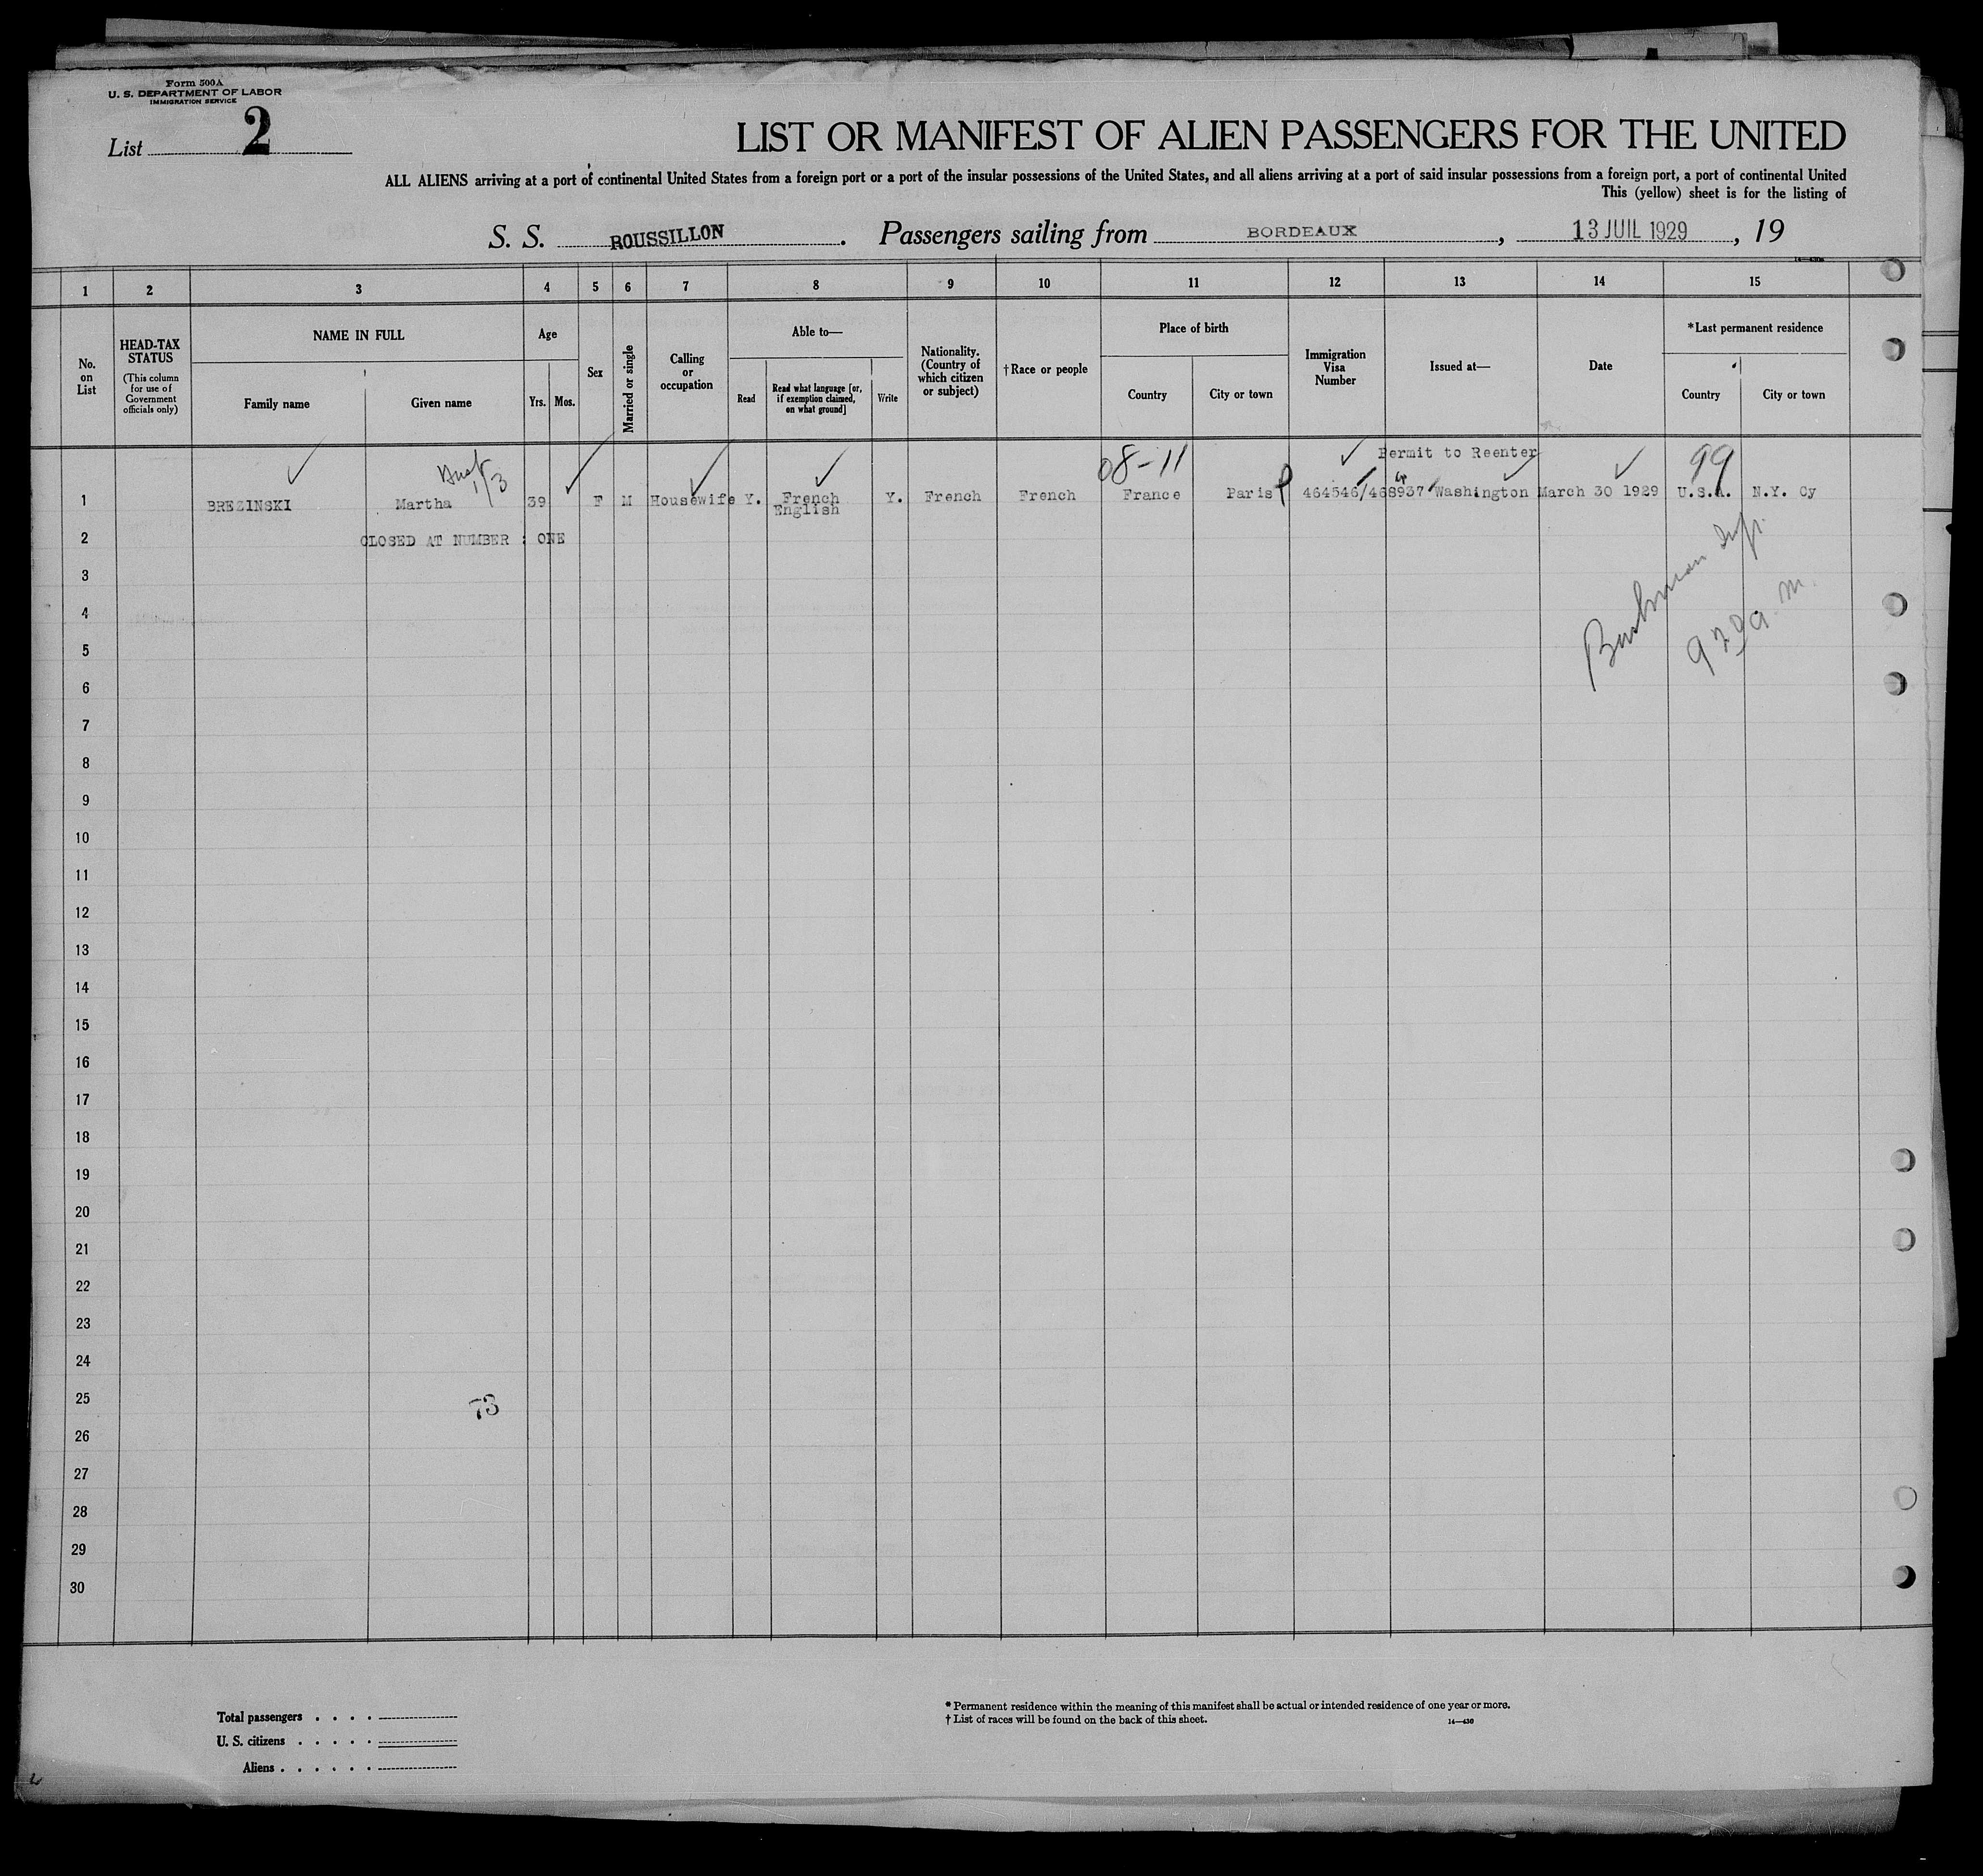 Form 500A
U. S. DEPARTMENT OF LABOR
IMMIGRATION SERVICE
List 2
LIST OR MANIFEST OF ALIEN PASSENGERS FOR THE UNITED
ALL ALIENS arriving at a port of continental United States from a foreign port or a port of the insular possessions of the United States, and all aliens arriving at a port of said insular possessions from a foreign port, a port of continental United
This (yellow) sheet is for the listing of
S. S. ROUSSILLON. Passengers sailing from BORDEAUX, 13 JUIL 1929, 19
1 2 3 4 5 6 7 8 9 10 11 12 13 14 15
No. on List
HEAD-TAX STATUS
(This column for use of Government officials only)
NAME IN FULL
Family name
Given name
Age
Yrs.
Mos.
Sex
Married or single
Calling or occupation
Able to—
Read
Read what language [or, if exemption claimed, on what ground]
Write
Nationality. (Country of which citizen or subject)
†Race or people
Place of birth
Country
City or town
Immigration Visa Number
Issued at—
Date
*Last permanent residence
Country
City or town
08-11
Permit to Reenter
99
1 BREZINSKI Martha 39 F M Housewife Y. French Y. French French France Paris 464546/468937 Washington March 30 1929 U.S.A. N.Y. Cy
English
2 CLOSED AT NUMBER : ONE
3
4
5
6
7
8
9
10
11
12
13
14
15
16
17
18
19
20
21
22
23
24
25
73
26
27
28
29
30
Total passengers . . . .
U. S. citizens . . . . .
Aliens . . . . . .
* Permanent residence within the meaning of this manifest shall be actual or intended residence of one year or more.
† List of races will be found on the back of this sheet.